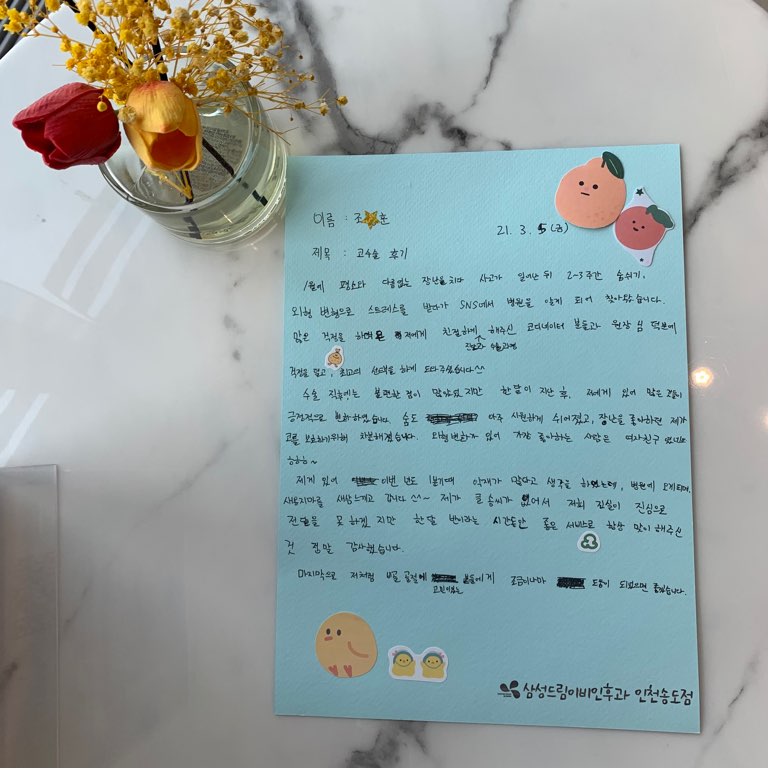 이름 : 조 훈
21. 3. 5 (금)
제목 : 코수술 후기
1월에 평소와 다름없는 장난을 치다 사고가 일어난 뒤 2~3주간 숨쉬기,
외형 변형으로 스트레스를 받다가 SNS에서 병원을 알게 되어 찾아왔습니다.
많은 걱정을 하며 저에게 친절하게 해주신 코디네이터 분들과 원장님 덕분에
진료와 수술과정
걱정을 덜고, 최고의 선택을 하게 도와주셨습니다^^
수술 직후에는 불편한 점이 많았었지만 한달이 지난 후, 저에게 있어 많은 것들이
긍정적으로 변화하였습니다. 숨도 아주 시원하게 쉬어졌고, 장난을 좋아하던 제가
코를 보호하기 위해 차분해졌습니다. 외형변화가 있어 가장 좋아하는 사람은 여자친구
ㅎㅎㅎ~
제게 있어 이번 년도 1분기때 악재가 많다고 생각을 하였는데, 병원에 오게되며,
새옹지마를 새삼 느끼고 갑니다 ^^~ 제가 글 솜씨가 없어서 저희 진실이 진심으로
전달을 못 하겠지만 한달 반이라는 시간동안 좋은 서비스로 항상 맞이해주신
것 정말 감사했습니다.
마지막으로 저처럼 비골 골절에 분들에게 조금이나마 도움이 되었으면 좋겠습니다.
고민이있는
삼성드림이비인후과 인천송도점